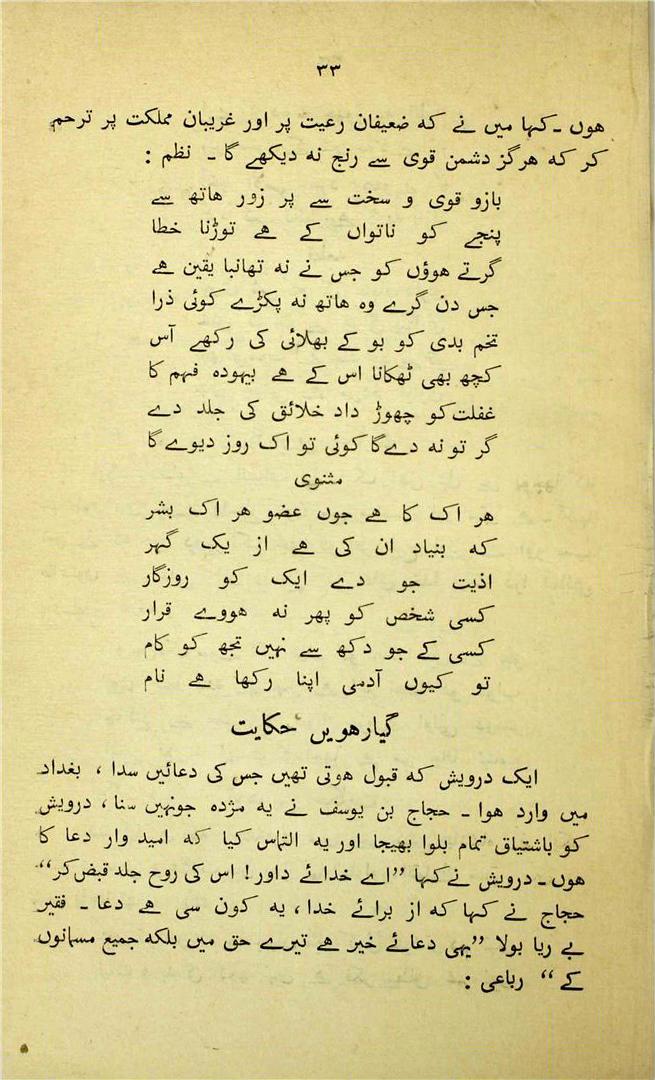 ۳۳
هوں ۔ کہا میں نے کہ ضعیفان رعیت پر اور غریبان مملکت پر ترحم
کر کہ هرگز دشمن قوی سے رنج نہ دیکھے گا ۔ نظم :
بازو قوی و سخت سے پر زور هاتھ سے
پنجے کو ناتواں کے هے توڑنا خطا
گرتے هوؤں کو جس نے نہ تھانبا یقین هے
جس دن گرے وہ هاتھ نہ پکڑے کوئی ذرا
تخم بدی کو بو کے بھلائی کی رکھے آس
کچھ بھی ٹھکانا اس کے هے بیہودہ فہم کا
غفلت کو چھوڑ داد خلائق کی جلد دے
گر تو نہ دے گا کوئی تو اک روز دیوے گا
مثنوی
هر اک کا هے جوں عضو هر اک بشر
کہ بنیاد ان کی هے از یک گہر
اذیت جو دے ایک کو روزگار
کسی شخص کو پھر نہ هووے قرار
کسی کے جو دکھ سے نہیں تجھ کو کام
تو کیوں آدمی اپنا رکھا هے نام
گیارهویں حکایت
ایک درویش کہ قبول هوتی تھیں جس کی دعائیں سدا ، بغداد
میں وارد هوا ۔ حجاج بن یوسف نے یہ مژدہ جونہیں سنا ، درویش
کو باشتیاق تمام بلوا بھیجا اور یہ التماس کیا کہ امید وار دعا کا
هوں ۔ درویش نے کہا ”اے خدائے داور ! اس کی روح جلد قبض کر“ ۔
حجاج نے کہا کہ از برائے خدا ، یہ کون سی هے دعا ۔ فقیر
بے ریا بولا ”یہی دعائے خیر هے تیرے حق میں بلکہ جمیع مسلمانوں
کے“ رباعی :